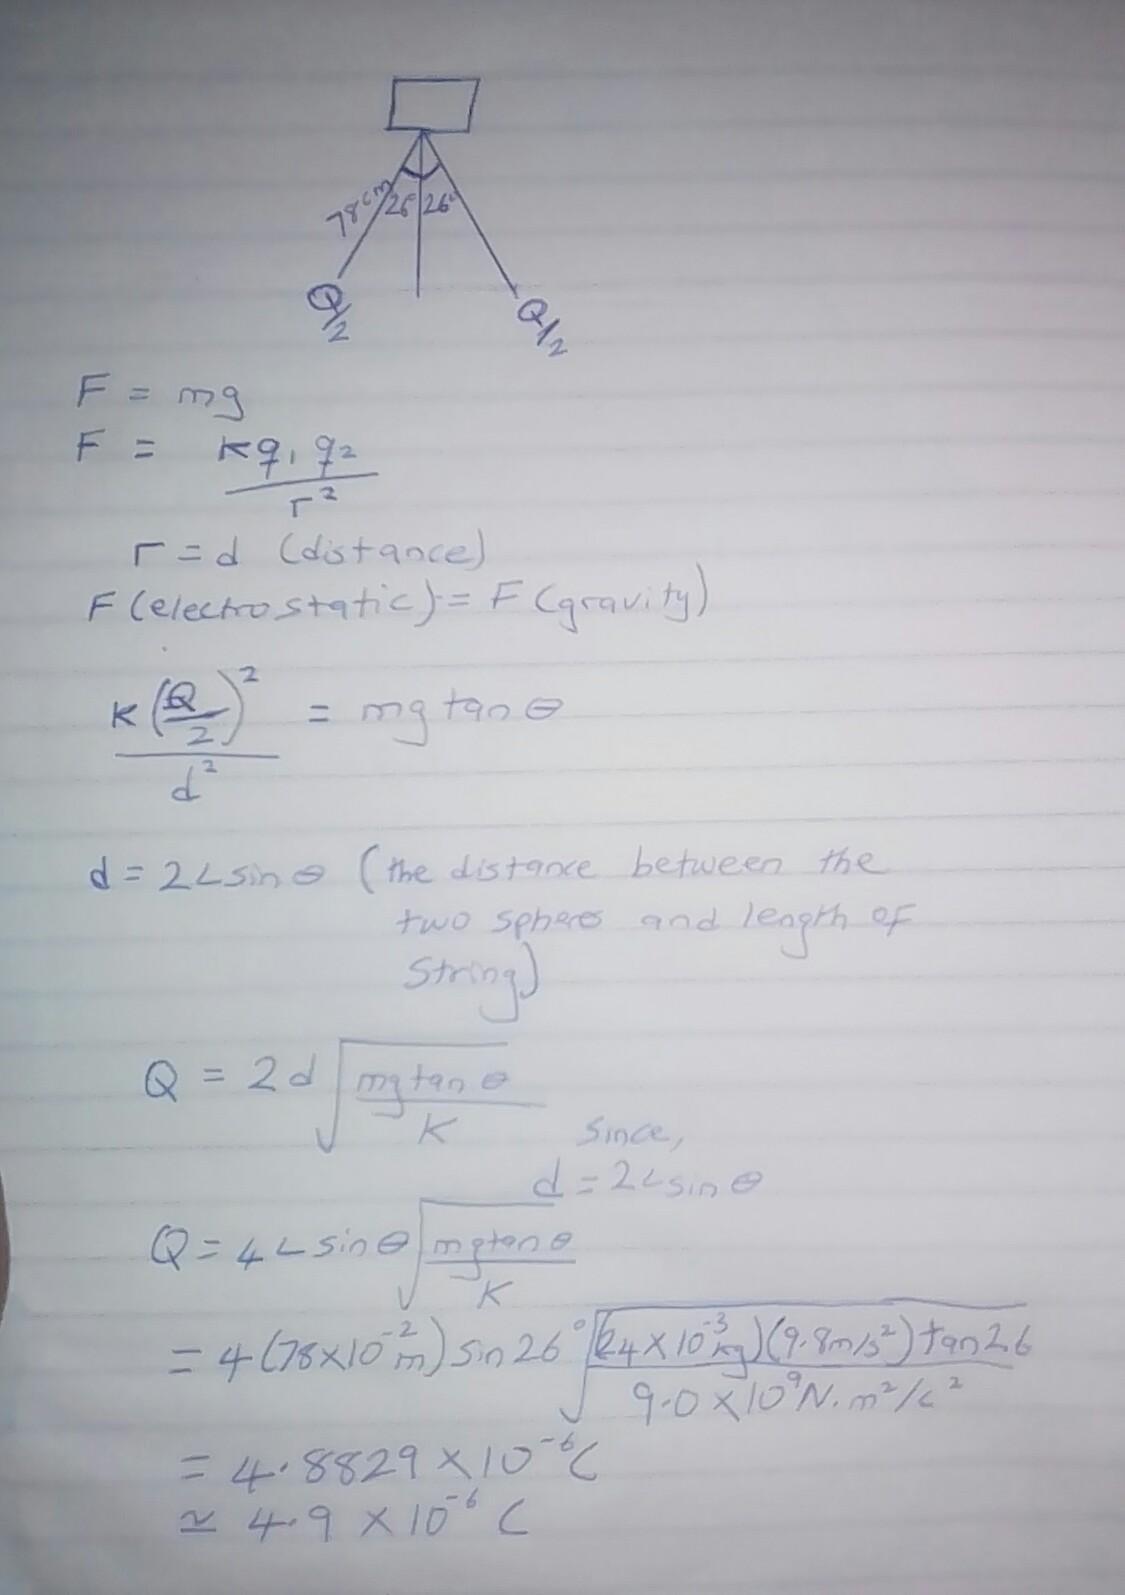 78cm
26° 26°
Q/2
Q/2
F = mg
F = kq₁q₂/r²
r = d (distance)
F (electrostatic) = F (gravity)
k(Q/2)²/d² = mg tan θ
d = 2L sin θ (the distance between the
two spheres and length of
string)
Q = 2d √(mg tan θ/K)
Since,
d = 2L sin θ
Q = 4L sin θ √(mg tan θ/K)
= 4(78×10⁻²m) sin 26° √((24×10⁻³kg)(9.8m/s²) tan 26/9.0×10⁹N.m²/c²)
= 4.8829 × 10⁻⁶C
≃ 4.9 × 10⁻⁶ C